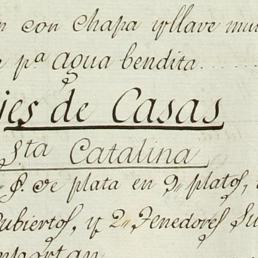 n con chapa y llave mu
e pª agua bendita
jes de Casas
Sta Catalina
$. de plata en 2 platos,
ubiertos, y 2 Tenedores Su
mportan